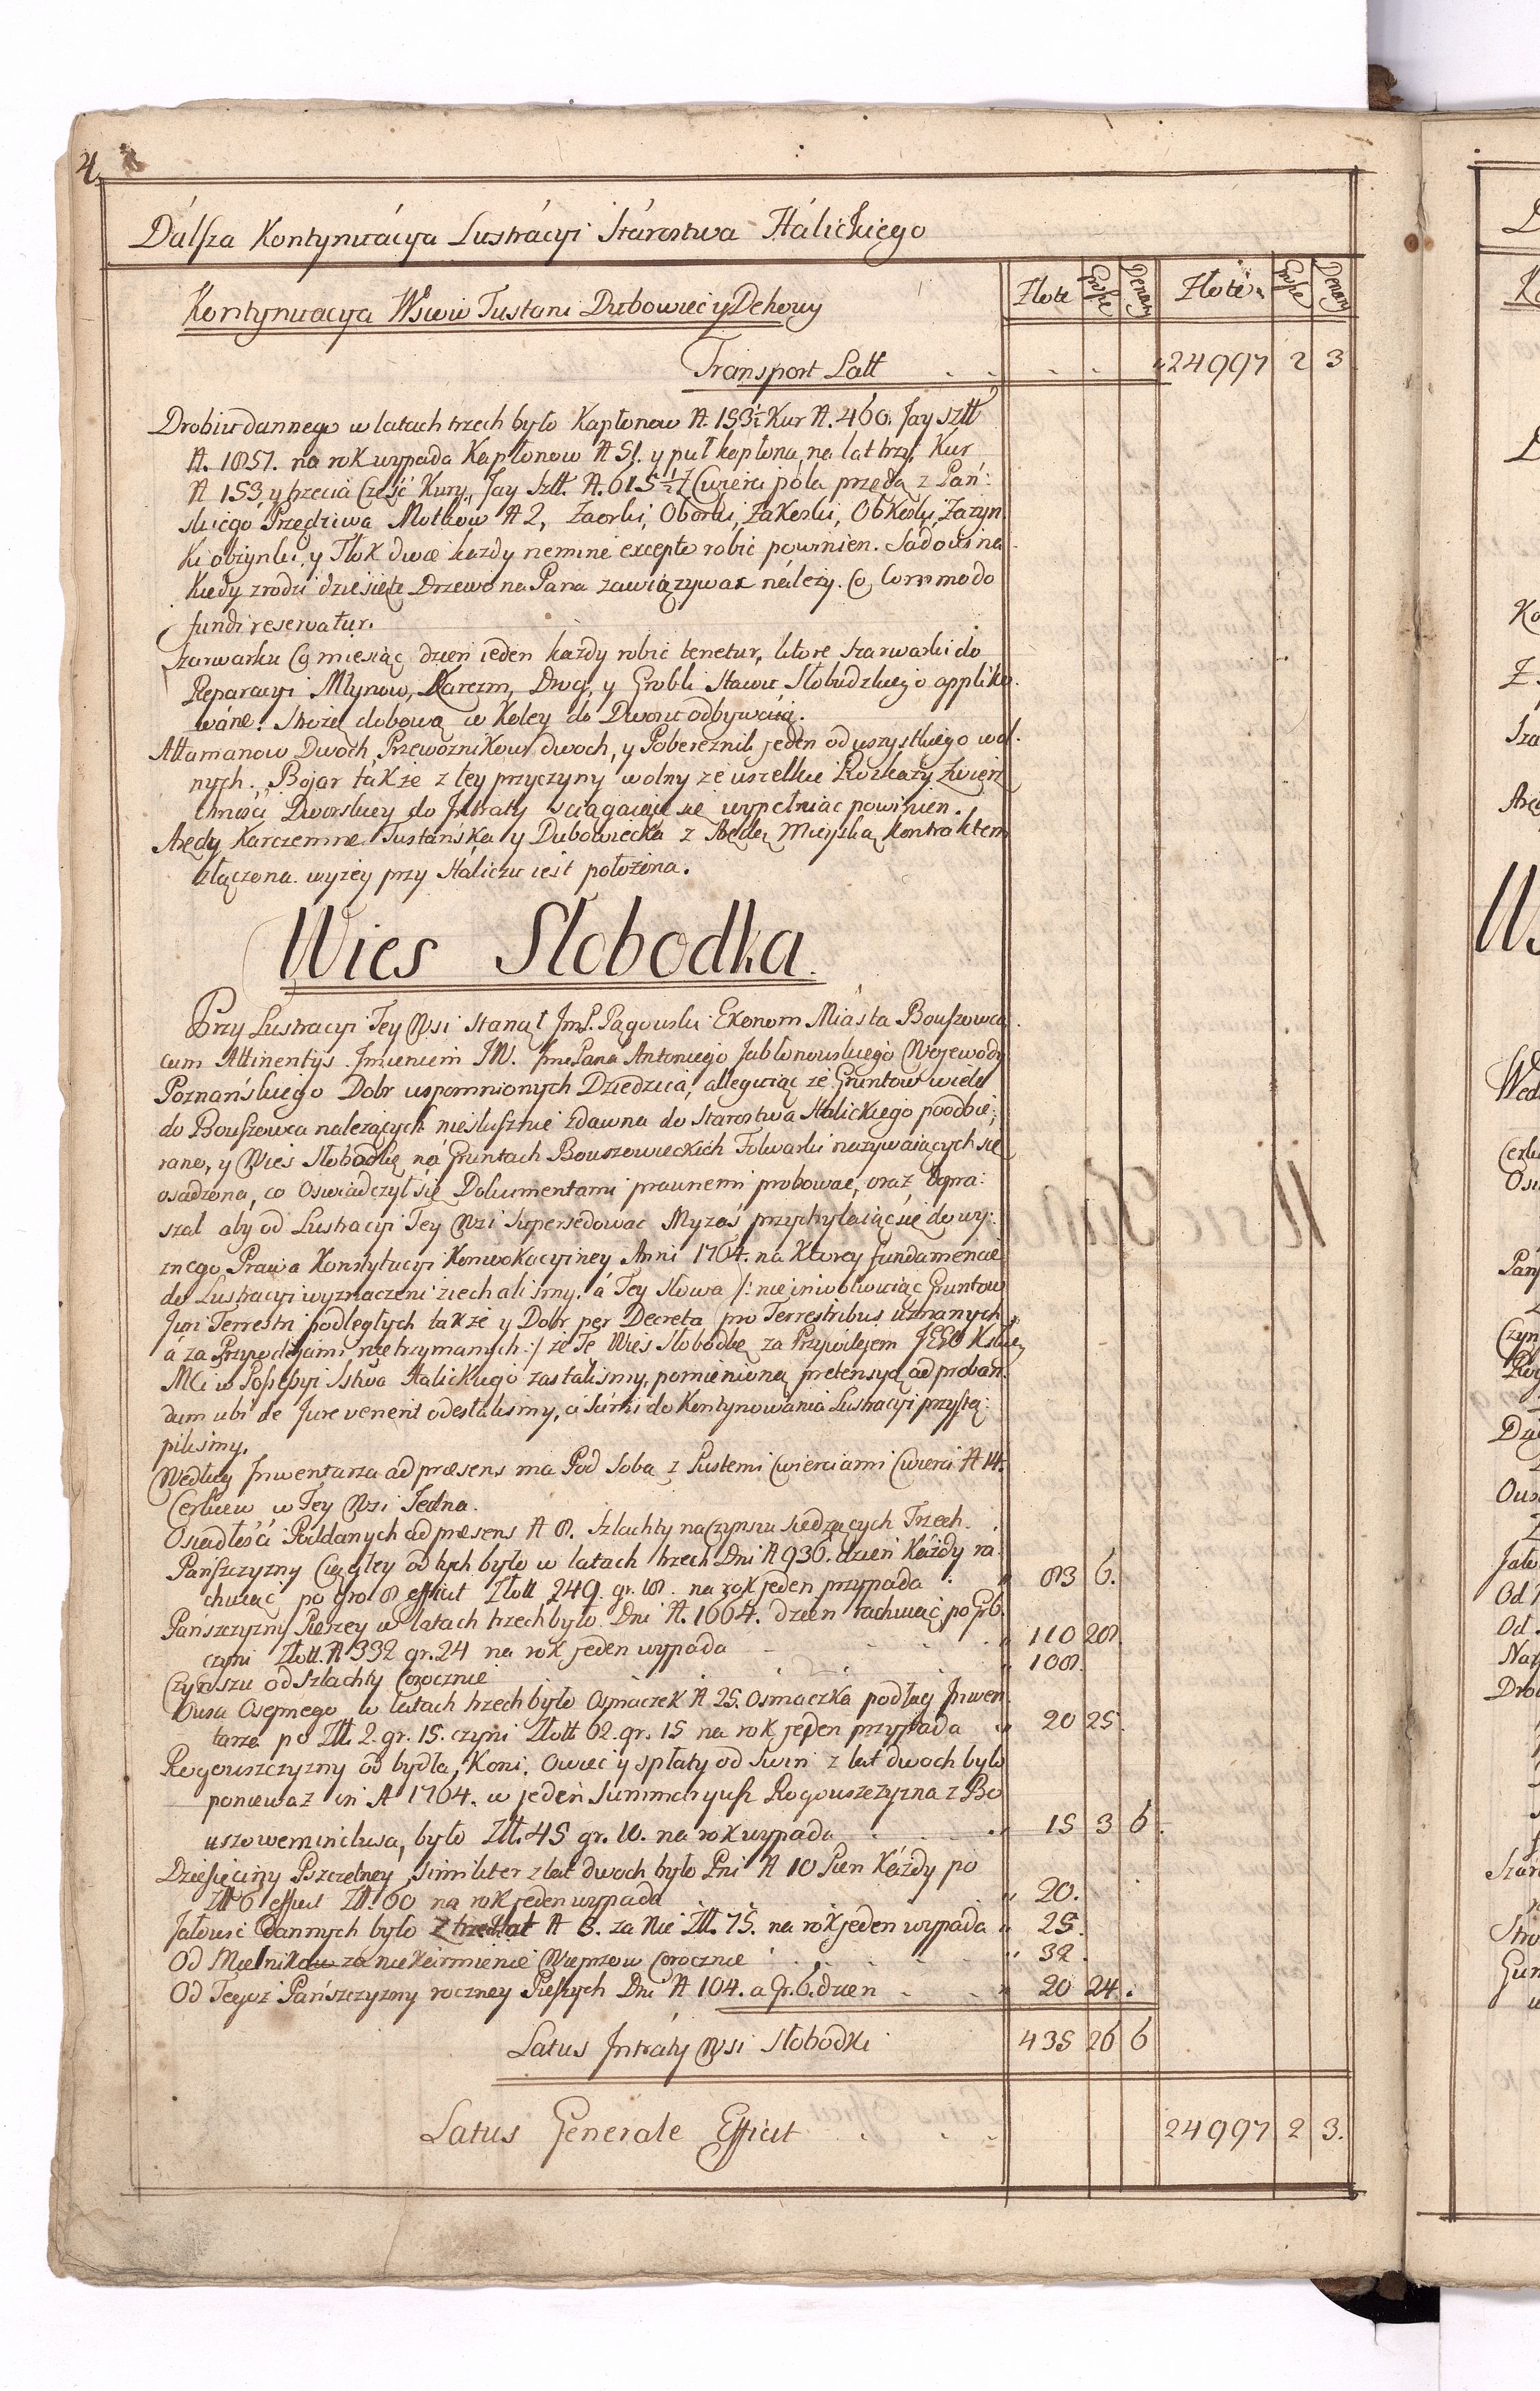 4
Dálsza Kontynuácya Lustrácyi Stárostwa Hálickiego
Kontynuacya Wsiów Tustani Dubowiec y Dehowy
Złote Grosze Denary Złote Grosze Denary
Transport Latt . . . . 24997 2 3
Drobiu dannego w latach trzech było Kapłonow N. 153½ Kur N. 460. Jay sztt
N. 1851. na rok wypada Kapłonow N 51. y puł kapłona, na lat trzy, Kur
N 153 y trzecia Część Kury, Jay Sztt. N. 615 Cwierci pola przędą z Pań:
skiego Przędziwa Motków N 2, Zaorki, Oborki, Zakoski, Obkoski, Zazyn
ki obzynki, y Tłok dwie kazdy nemine excepto robić powinien. Sadowina
kiedy zrodzi dziesięte Drzewo na Pana zawiązywać náleży. Co Commodo
fundi reservatur.
Szarwarku Co miesiąc dzień ieden każdy robić tenetur, które szarwarki do
Reparacyi Młynow, Karczm, Drog, y Grobli Stawu Słobudzkiego appliko
wáne. Stróżę dobową w Koley do Dworu odbywáią.
Attamanow Dwoch, Przewoznikow dwoch, y Pobereznik jeden od wszystkiego wol
nych. Bojar także z tey przyczyny wolny że wszelkie Rozkazy Zwierz
chnosci Dworskiey do Intraty sciągaiące się wypełniac powinien.
Arędy Karczemne Tustańska y Dubowiecka z Arędą Mieyską kontraktem
złączona wyzey przy Háliczu iest położona.
Wies Słobodka.
Przy Lustracyi Tey Wsi stanął ImP. Pągowski Ekonom Miásta Bouszowca
cum Attinentijs Imieniem JW. Jme Pana Antoniego Jabłonowskiego Wojewody
Poznańskiego Dobr wspomnionych Dziedzica, alleguiąc że Gruntow wiele
do Bouszowca nalezących niesłusznie zdawna do Starostwa Halickiego poodbie;
rano, y Wies Słobodkę ná Gruntach Bouszowieckich Folwarki nazywaiących się
osadzona, co Oswiadczył się Dokumentami prawnemi probowac, oraz Upra:
szał aby od Lustracyi Tey Wsi supersedowac Myzaś przychylaiąc się do wy:
znego Prawa Konstytucyi Konwokacyiney Anni 1764. na Ktorey fundamencie
do Lustracyi wyznaczeni ziechalismy. á Tey słowa /: nie inwolwuiąc Gruntow
Juri Terrestri podległych także y Dobr per Decreta pro Terrestribus uznanych
á za Przywilejami nie trzymanych :/ ze Tę Wies Słobodkę za Przywilejem JEGO K
Mci w Possessyi Sstwa Halickiego zastalismy, pomienioną pretensyą ad proban
dum ubi de Jure venerit odesłalismy, a sámi do Kontynowánia Lustracyi przystą:
pilismy.
Według Inwentarza ad præsens ma Pod Sobą z Pustemi Cwierciami Cwierci N 14.
Cerkiew w Tey Wsi Jedna.
Osiadłości Poddanych ad præsens N 8. Szlachty na Czynszu siedzących Trzech.
Pańszczyzny Ciągłey od tych było w latach trzech Dni N 936. dzień Káżdy ra
chuiąc po gro 8 efficit Złott 249. gr. 18. na rok jeden przypada . " 83 6.
Pańszczyzny Pieszey w latach trzech było Dni N. 1664. dzien rachuiąc po Gr 6.
czyni Złott. N 332 gr. 24 na rok jeden wypada . " 110 28.
Czynszu od Szlachty Corocznie . " 108.
Owsa Osepnego w latach trzech było Osmaczek N 25. Osmaczka podług Inwen
tarza po Ztt. 2. gr. 15. czyni Złott 62. gr. 15 na rok jeden przypada " 20 25.
Rogowszczyzny od bydła, Koni, Owiec y spłaty od swin z lat dwoch było
poniewaz in A 1764. w jeden Summaryusz Rogowszczyzna z Bo
uszowcem inclusa, było Ztt. 45 gr. 10. na rok wypada . " 15 3 6.
Dziesięciny Pszczelney, similiter z lat dwoch było Pni N 10 Pien Káżdy po
Ztt 6 efficit Ztt. 60 na rok jeden wypada . " 20.
Jałowic dannych było z trzech lat N 3. za Nie Ztt. 75. na rok jeden wypada " 25.
Od Mielnikow za niekármienie Wieprzow Corocznie . " 32.
Od Tegoż Pańszczyzny roczney Pieszych Dni N 104. a Gr. 6. dzien . " 20 24.
Latus Intraty Wsi Słobodki 435 26 6
Latus Generale Efficit . . . 24997 2 3.